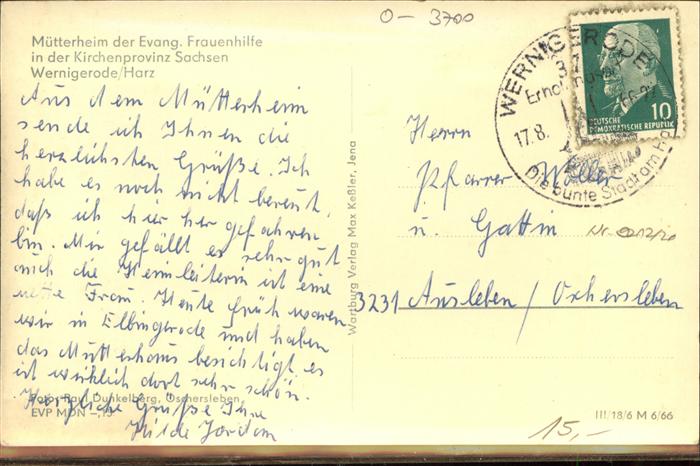 O-3700
Mütterheim der Evang. Frauenhilfe
in der Kirchenprovinz Sachsen
Wernigerode/Harz
Aus dem Mütterheim
sende ich Ihnen die
herzlichsten Grüße. Ich
habe es noch nicht bereut,
daß ich hier her gefahren
bin. Mir gefällt es sehr gut
auch die Heimleiterin ist eine
nette Frau. Heute früh waren
wir in Elbingerode und haben
das Mutterhaus besichtigt, es
ist wirklich dort sehr schön.
Herzliche Grüße Ihre
Hilde Jordan
Foto: Paul Dunkelberg, Oschersleben
EVP MDN -,15
Wartburg Verlag Max Keßler, Jena
WERNIGERODE
17.8.
Die bunte Stadt am
10
DEUTSCHE
DEMOKRATISCHE REPUBLIK
Herrn
Pfarrer
u. Gattin
3231 Ausleben / Oschersleben
III/18/6 M 6/66
15,-